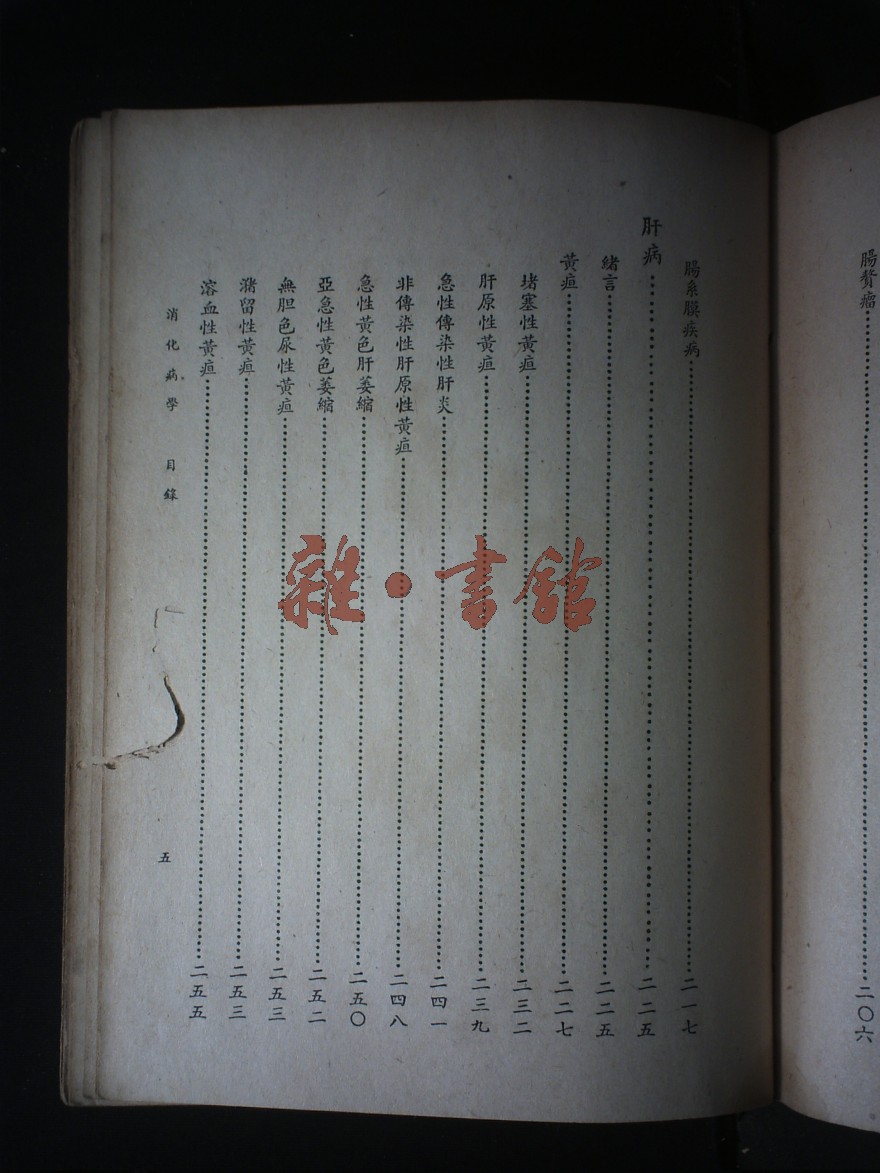 腸贅瘤……二〇六
腸系膜疾病……二一七
肝病……二二五
緒言……二二五
黃疸……二二七
堵塞性黃疸……二三二
肝原性黃疸……二三九
急性傳染性肝炎……二四一
非傳染性肝原性黃疸……二四八
急性黃色肝萎縮……二五〇
亞急性黃色萎縮……二五二
無胆色尿性黃疸……二五三
潴留性黃疸……二五三
溶血性黃疸……二五五
消化病學 目錄 五
雜·書館